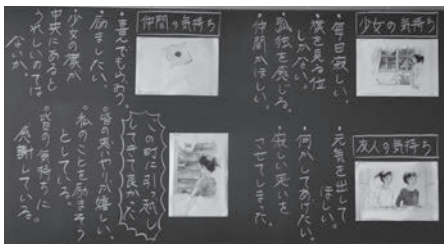 少女の気持ち
・毎日寂しい。
・旗を見る位
しかない。
・孤独を感じる。
・仲間がほしい。
友人の気持ち
・元気を出して
ほしい。
・何かしてあげたい。
・寂しい思いを
させてしまった。
仲間の気持ち
・喜んでもらおう。
・励ましたい。
・少女の旗が
中央にあると
うれしいのでは
ないか。
この町に引っ越
してきて良かった
・皆の思いやりが嬉しい。
・私のことを励まそう
としている。
・皆の気持ちに
感謝している。